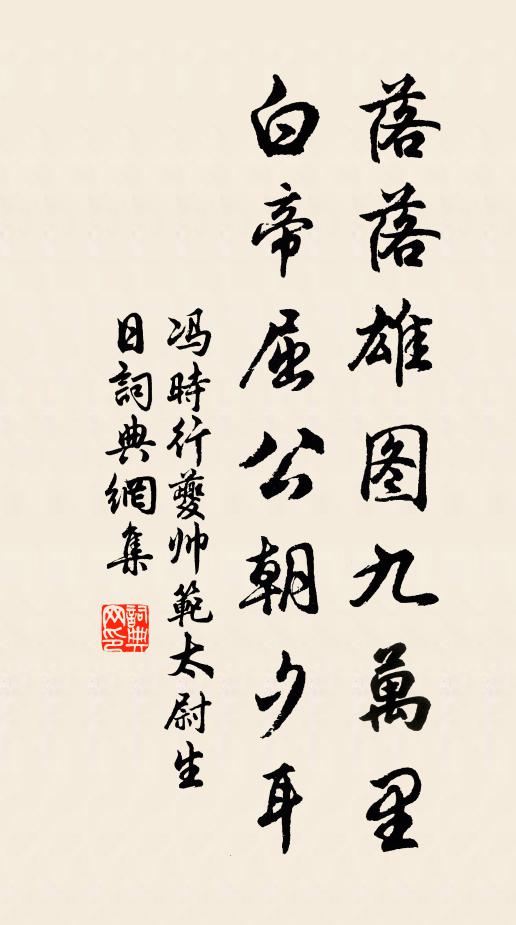 落落雄图九萬里
白帝屈公朝夕耳
冯時行夔帅範太尉生
日詞典網集
詞典
网印